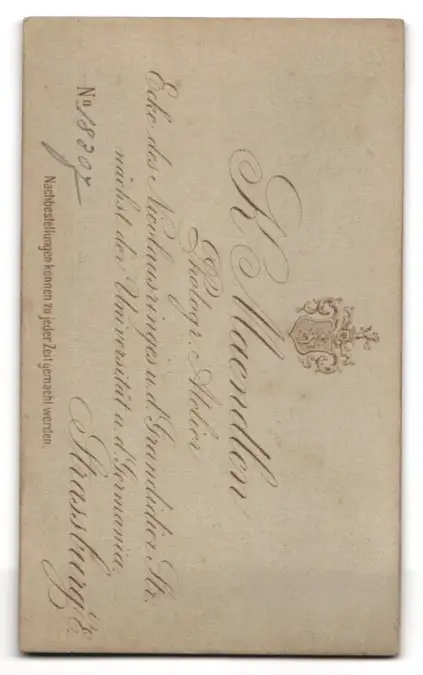 K Maendlen
Photogr. Atelier
Ecke des Nicolausringes u. d. Grandidier Str.
nächst der Universität u. d. Germania.
No 18207
Strassburg i/E
Nachbestellungen können zu jeder Zeit gemacht werden.